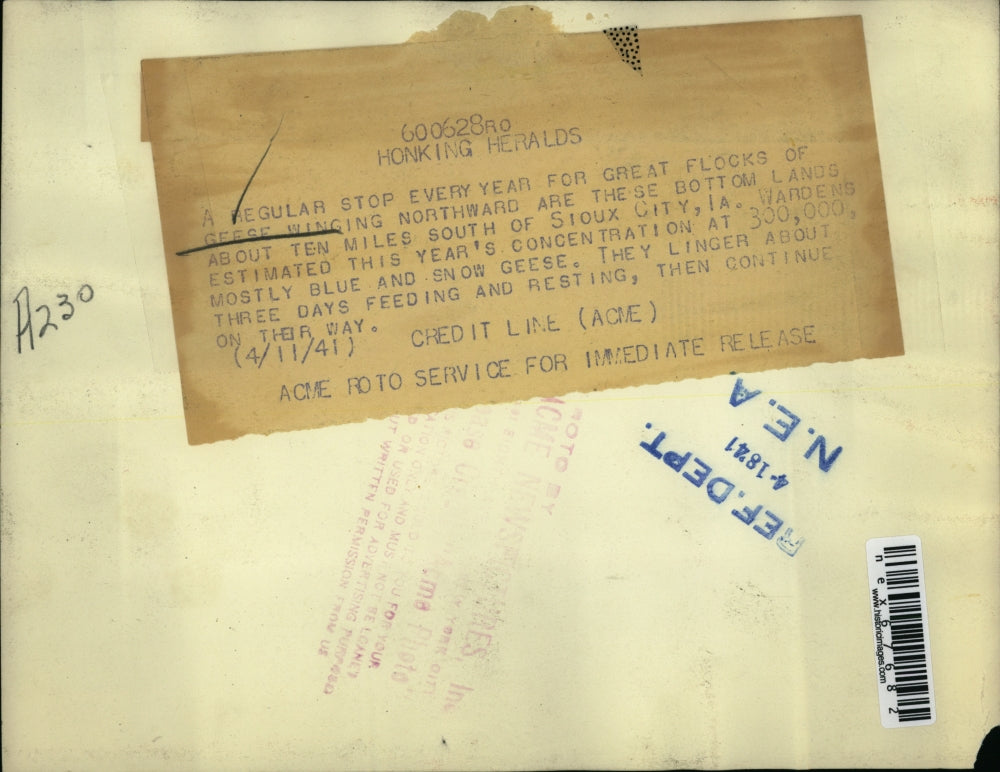 600628RO
HONKING HERALDS
A REGULAR STOP EVERY YEAR FOR GREAT FLOCKS OF
GEESE WINGING NORTHWARD ARE THESE BOTTOM LANDS
ABOUT TEN MILES SOUTH OF SIOUX CITY, IA. WARDENS
ESTIMATED THIS YEAR'S CONCENTRATION AT 300,000,
MOSTLY BLUE AND SNOW GEESE. THEY LINGER ABOUT
THREE DAYS FEEDING AND RESTING, THEN CONTINUE
ON THEIR WAY.
(4/11/41) CREDIT LINE (ACME)
ACME ROTO SERVICE FOR IMMEDIATE RELEASE
A230
N.E.A.
4-1841
REF. DEPT.
BY
ACME NEWSPICTURES, Inc
YORK CITY
FOR YOUR
AND MUST NOT BE LOANED
OR USED FOR ADVERTISING PURPOSES
WRITTEN PERMISSION FROM US
nex67682
www.historicimages.com